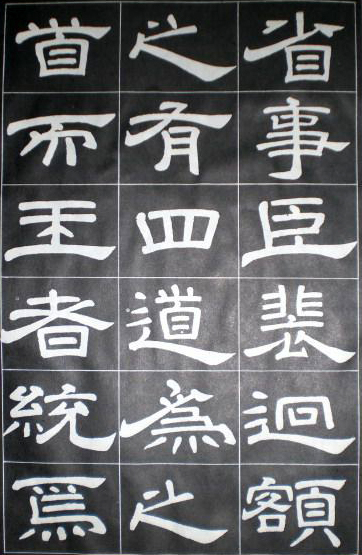 省事臣裴迥額
之有四道為之
首而王者統焉